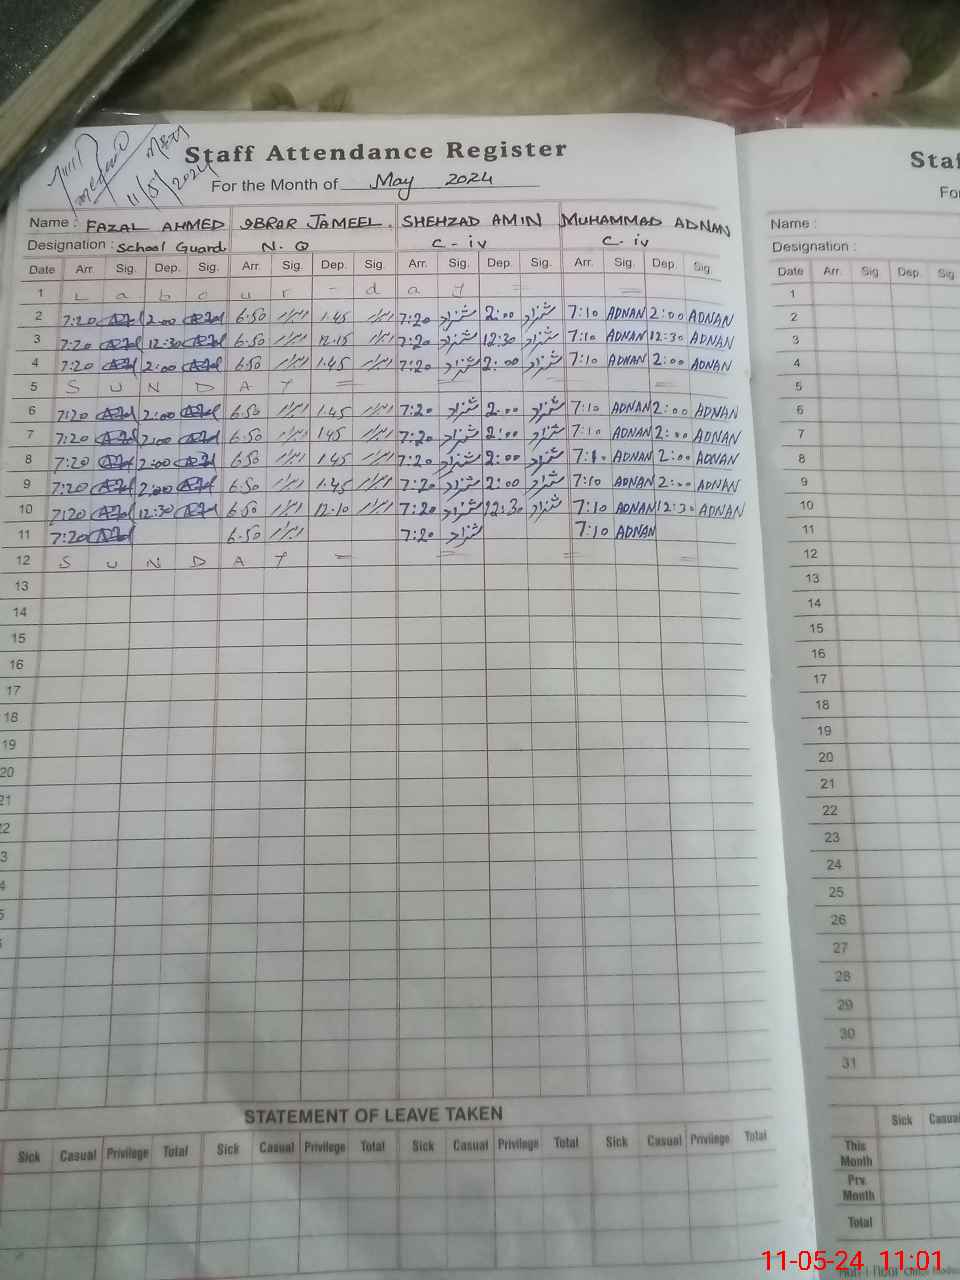 11/5/2024
Staff Attendance Register
For the Month of May 2024
Name : FAZAL AHMED IBRAR JAMEEL. SHEHZAD AMIN MUHAMMAD ADNAN
Designation : School Guard N.Q C-iv C.iv
Date Arr. Sig. Dep. Sig. Arr. Sig. Dep. Sig. Arr. Sig. Dep. Sig. Arr. Sig. Dep. Sig.
1 L a b o u r - d a y =
2 7:20 2:00 6.50 ابرار 1.45 ابرار 7:20 شہزاد 2:00 شہزاد 7:10 ADNAN 2:00 ADNAN
3 7:20 12:30 6.50 ابرار 12.15 ابرار 7:20 شہزاد 12:30 شہزاد 7:10 ADNAN 12:30 ADNAN
4 7:20 2:00 6.50 ابرار 1.45 ابرار 7:20 شہزاد 2:00 شہزاد 7:10 ADNAN 2:00 ADNAN
5 S U N D A Y =
6 7:20 2:00 6.50 ابرار 1.45 ابرار 7:20 شہزاد 2:00 شہزاد 7:10 ADNAN 2:00 ADNAN
7 7:20 2:00 6.50 ابرار 1.45 ابرار 7:20 شہزاد 2:00 شہزاد 7:10 ADNAN 2:00 ADNAN
8 7:20 2:00 6.50 ابرار 1.45 ابرار 7:20 شہزاد 2:00 شہزاد 7:10 ADNAN 2:00 ADNAN
9 7:20 2:00 6.50 ابرار 1.45 ابرار 7:20 شہزاد 2:00 شہزاد 7:10 ADNAN 2:00 ADNAN
10 7:20 12:30 6.50 ابرار 12.10 ابرار 7:20 شہزاد 12:30 شہزاد 7:10 ADNAN 12:30 ADNAN
11 7:20 6.50 ابرار 7:20 شہزاد 7:10 ADNAN
12 S U N D A Y =
13
14
15
16
17
18
19
20
21
22
3
4
5
STATEMENT OF LEAVE TAKEN
Sick Casual Privilege Total Sick Casual Privilege Total Sick Casual Privilege Total Sick Casual Privilege Total
Staf
Fo
Name :
Designation :
Date Arr. Sig Dep. Sig
1
2
3
4
5
6
7
8
9
10
11
12
13
14
15
16
17
18
19
20
21
22
23
24
25
26
27
28
29
30
31
Sick Casual
This Month
Prv. Month
Total
11-05-24 11:01